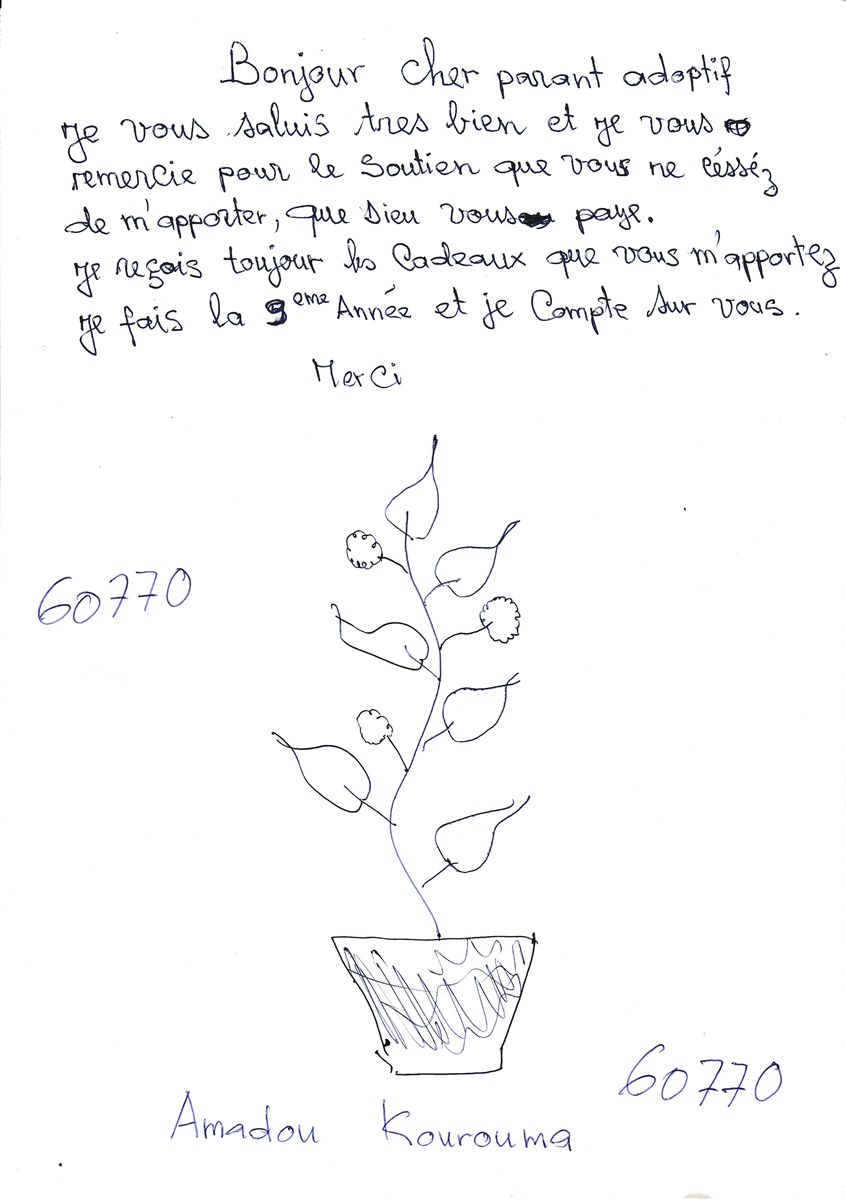 Bonjour cher parant adoptif
Je vous saluis tres bien et je vous
remercie pour le Soutien que vous ne césséz
de m'apporter, que Dieu vous paye.
Je reçois toujour les Cadeaux que vous m'apportez
Je fais la 9eme Année et je Compte sur vous.
Merci
60770
60770
Amadou Kourouma